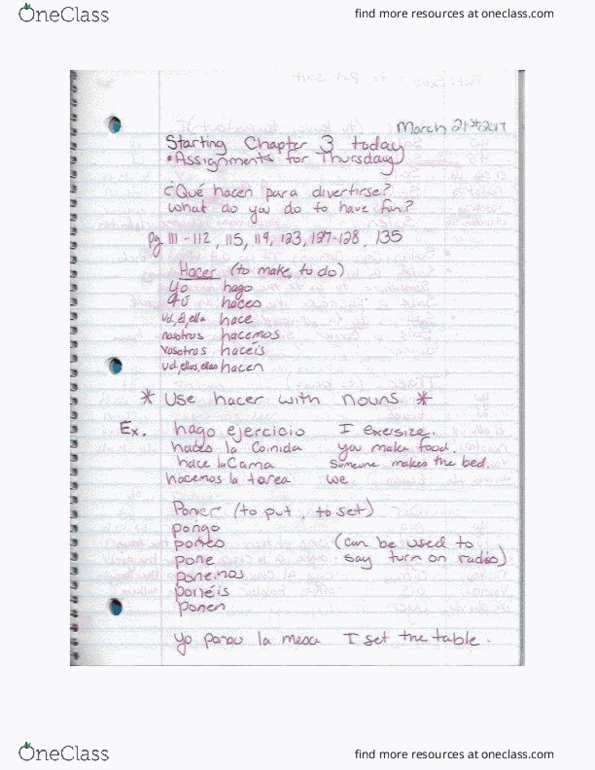 OneClass
find more resources at oneclass.com
March 21st 2017
Starting Chapter 3 today
• Assignments for Thursday
¿Qué hacen para divertirse?
What do you do to have fun?
Pg 111-112, 115, 119, 123, 127-128, 135
Hacer (to make, to do)
Yo hago
tú haces
ud, él, ella hace
nosotros hacemos
vosotros hacéis
ud, ellos, ellas hacen
* Use hacer with nouns *
Ex. hago ejercicio I exersize.
haces la Comida you make food.
hace la Cama Someone makes the bed.
hacemos la tarea we
Poner (to put, to set)
pongo
pones (can be used to
pone say turn on radio)
ponemos
ponéis
ponen
yo la mesa I set the table.
OneClass
find more resources at oneclass.com